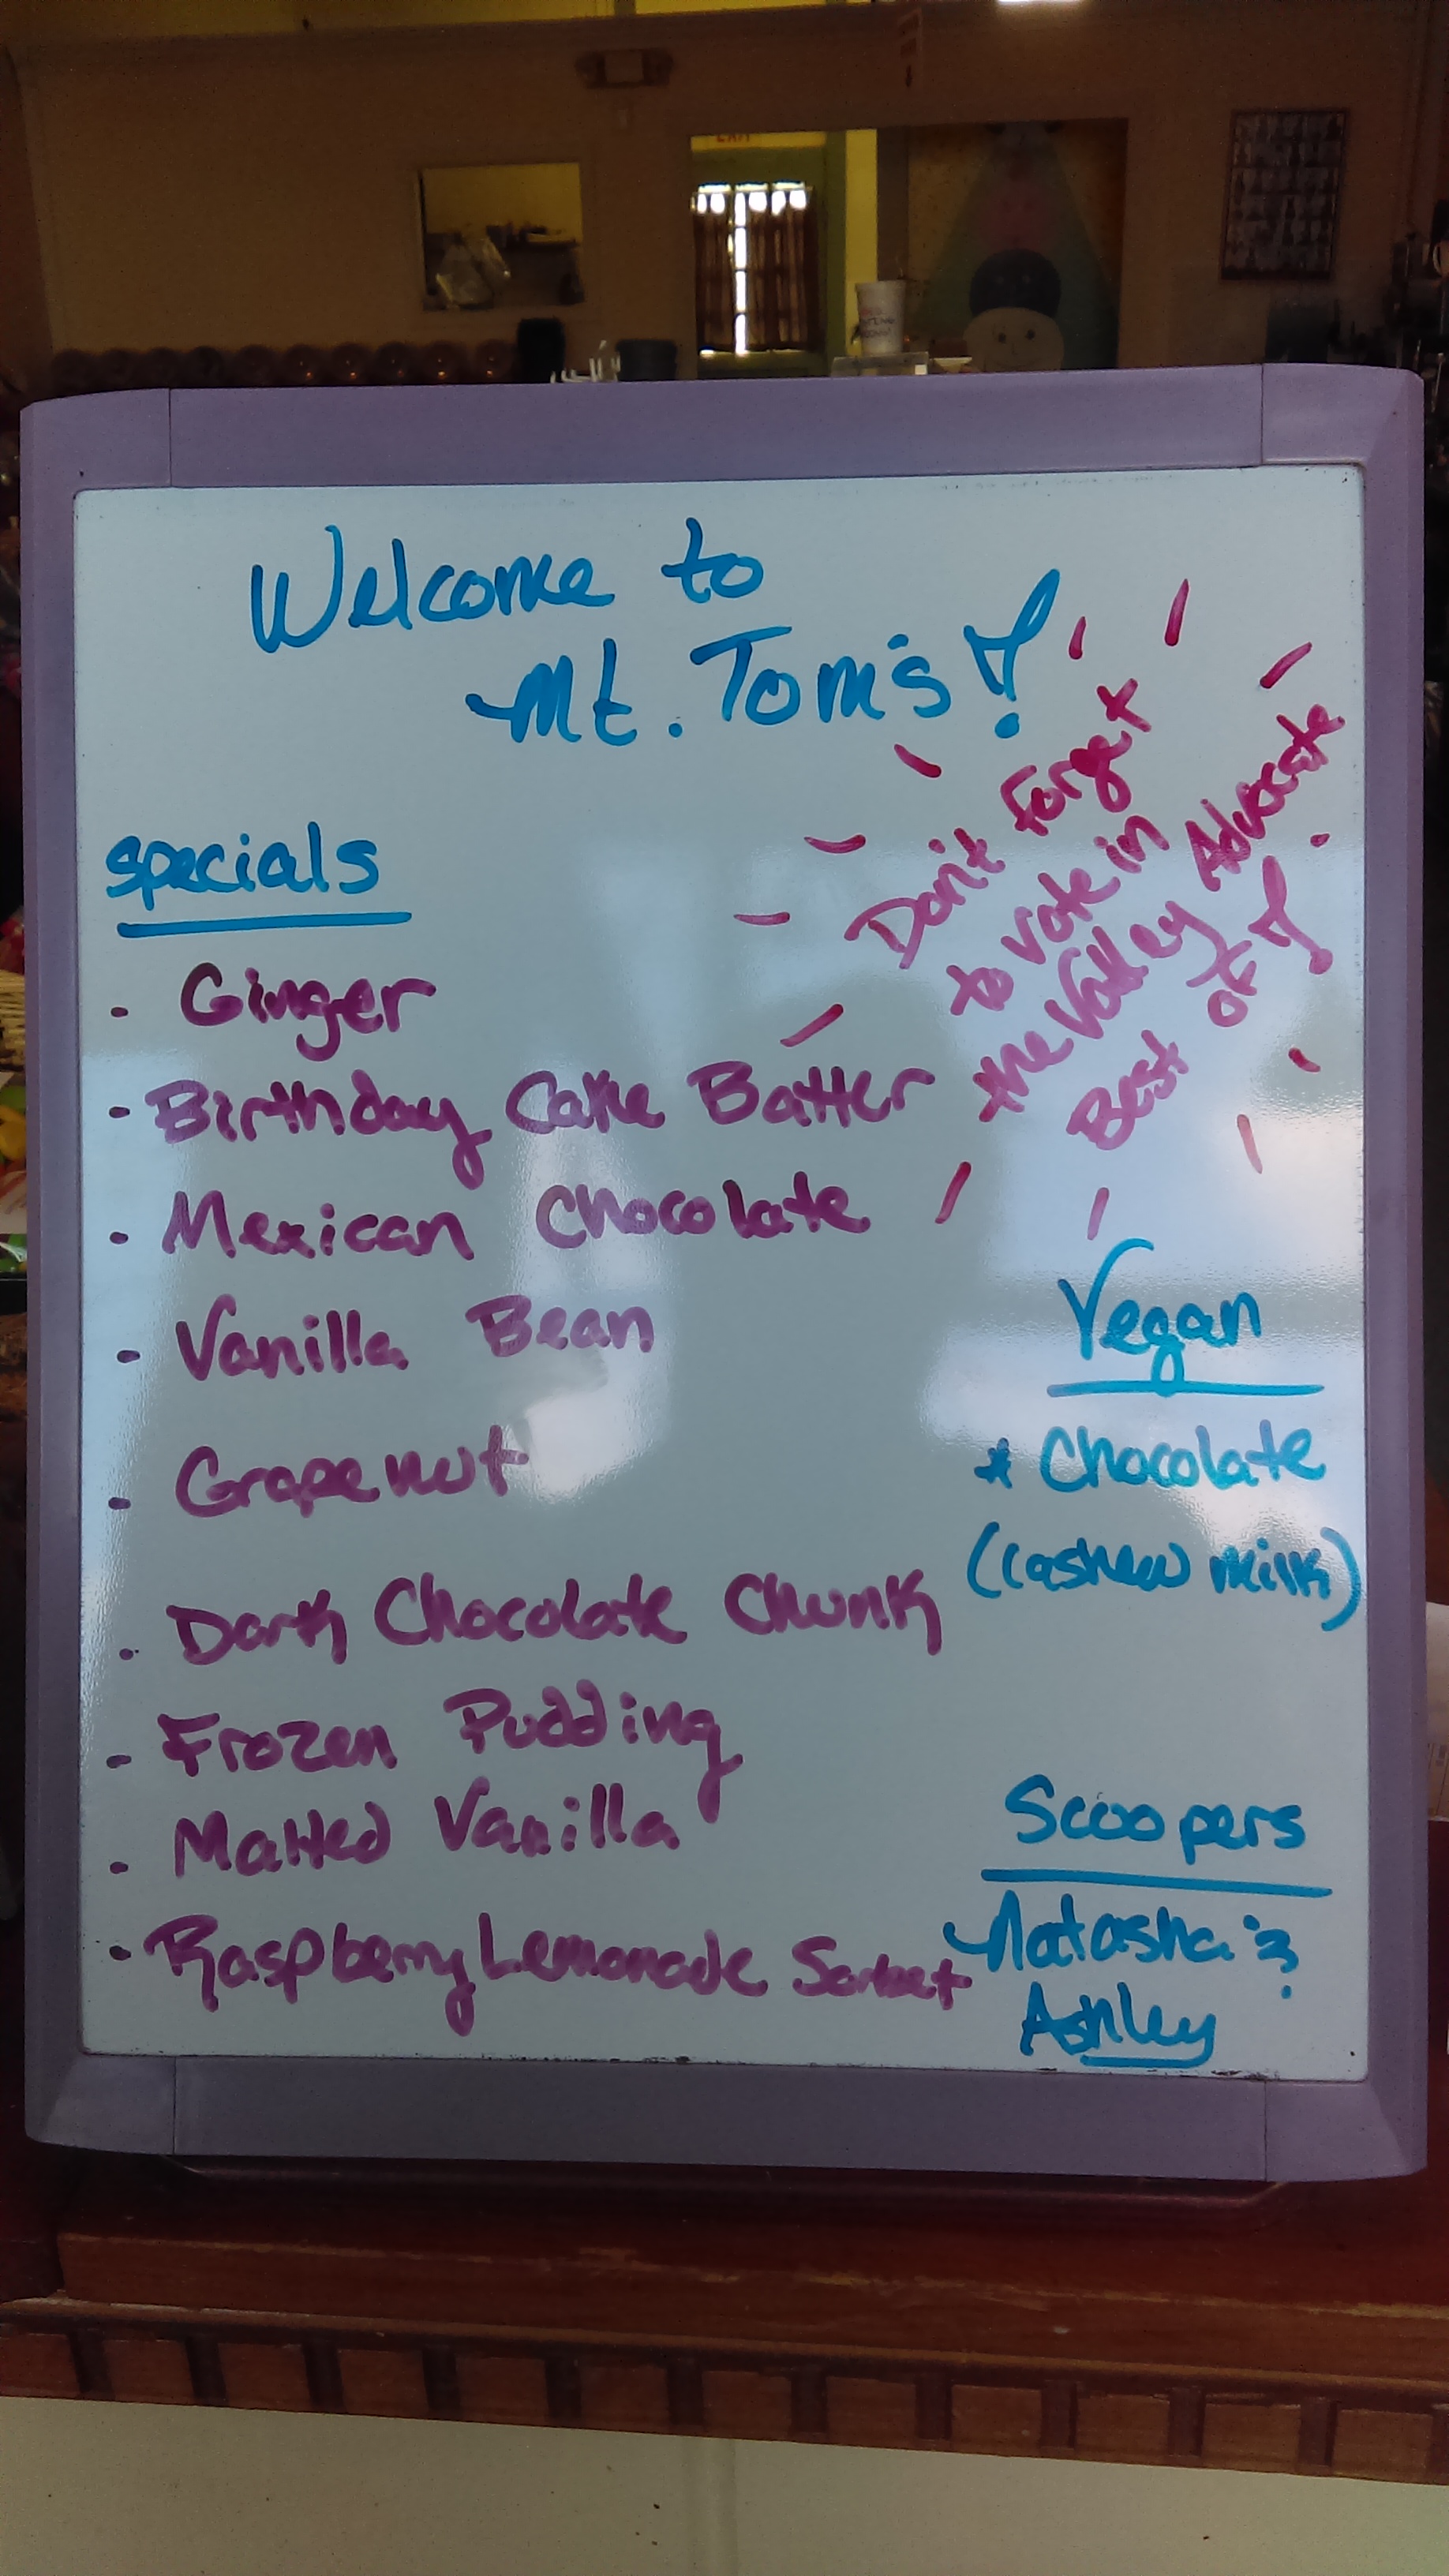 EXIT
Welcome to
Mt. Tom's!
Don't Forget
to vote in
the Valley Advocate
Best of!
specials
- Ginger
- Birthday Cake Batter
- Mexican Chocolate
- Vanilla Bean
- Grapenut
- Dark Chocolate Chunk
- Frozen Pudding
- Malted Vanilla
- Raspberry Lemonade Sorbet
Vegan
* Chocolate
(cashew milk)
Scoopers
Natasha &
Ashley